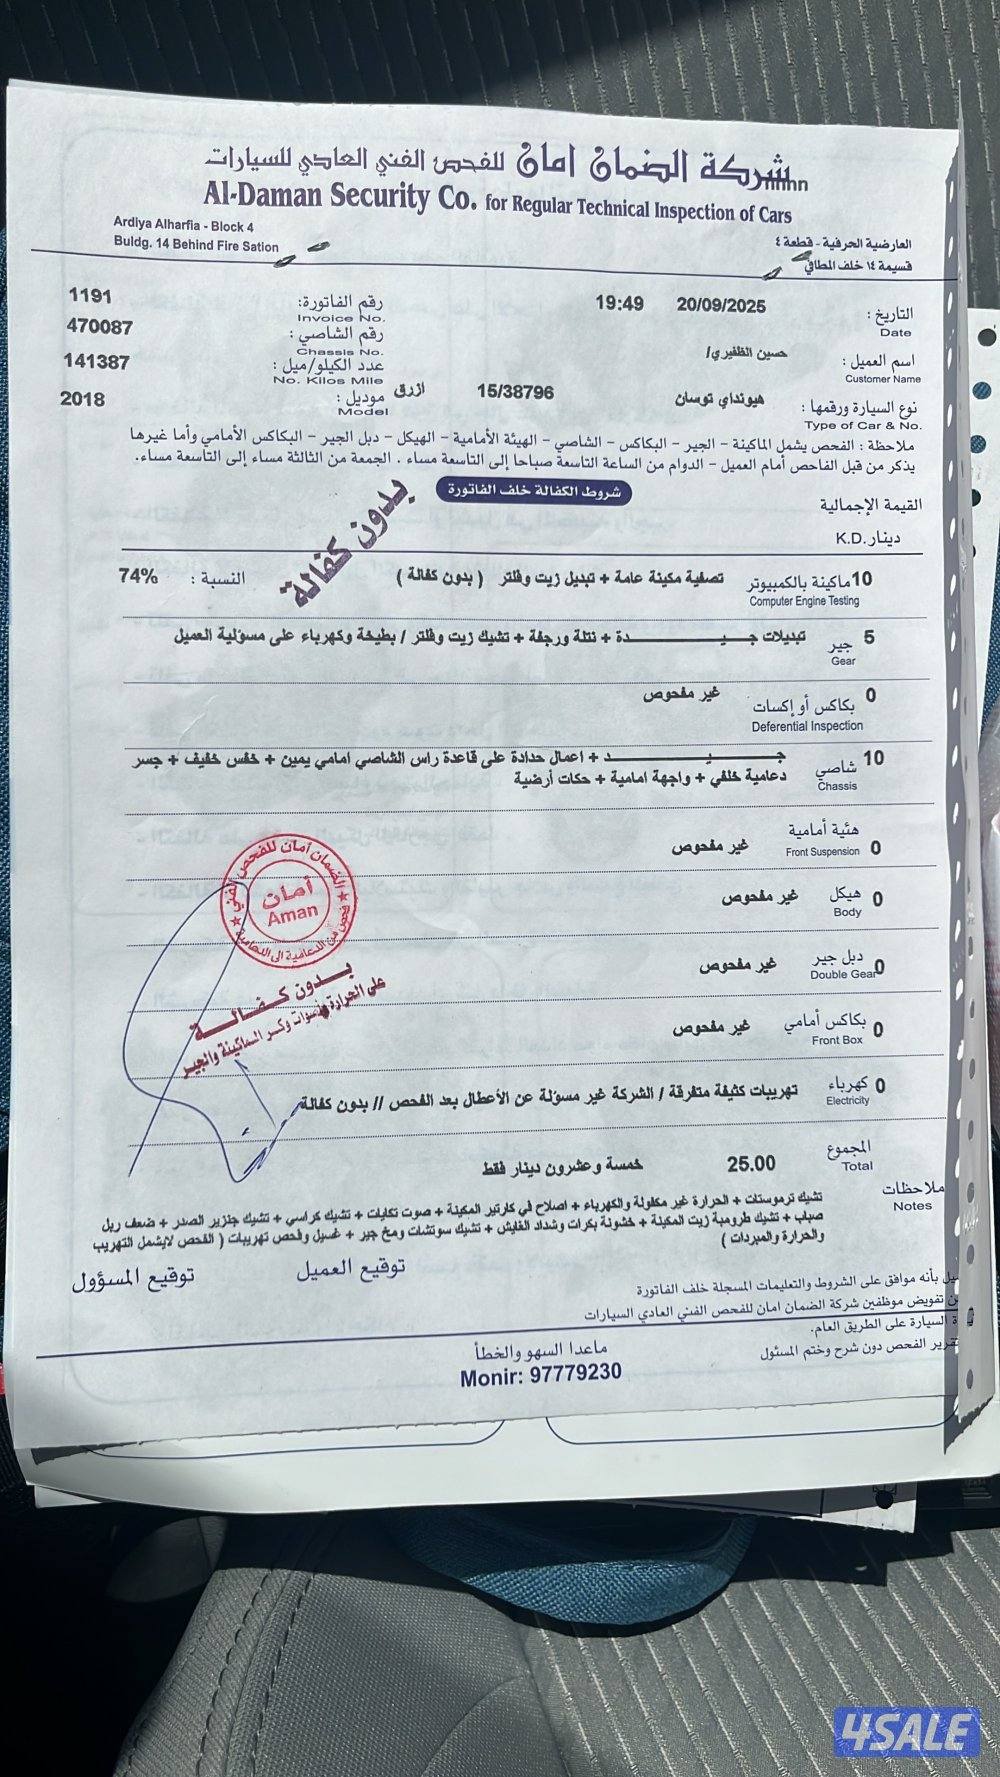 شركة الضمان امان للفحص الفني العادي للسيارات
Al-Daman Security Co. for Regular Technical Inspection of Cars
Ardiya Alharfia - Block 4
Buldg. 14 Behind Fire Sation
العارضية الحرفية - قطعة ٤
قسيمة ١٤ خلف المطافي
التاريخ : 20/09/2025 19:49
Date
رقم الفاتورة: 1191
Invoice No.
رقم الشاصي : 470087
Chassis No.
اسم العميل : حسين الظفيري/
Customer Name
عدد الكيلو/ميل : 141387
No. Kilos Mile
نوع السيارة ورقمها : هيونداي توسان 15/38796 ازرق
Type of Car & No.
موديل : 2018
Model
ملاحظة : الفحص يشمل الماكينة - الجير - البكاكس - الشاصي - الهيئة الأمامية - الهيكل - دبل الجير - البكاكس الأمامي وأما غيرها
يذكر من قبل الفاحص أمام العميل - الدوام من الساعة التاسعة صباحا إلى التاسعة مساء . الجمعة من الثالثة مساء إلى التاسعة مساء.
شروط الكفالة خلف الفاتورة
بدون كفالة
القيمة الإجمالية
دينار .K.D
10 ماكينة بالكمبيوتر تصفية مكينة عامة + تبديل زيت وفلتر ( بدون كفالة ) النسبة : 74%
Computer Engine Testing
5 جير تبديلات جـــيـــــدة + نتلة ورجفة + تشيك زيت وفلتر / بطيخة وكهرباء على مسؤلية العميل
Gear
0 بكاكس أو إكسات غير مفحوص
Deferential Inspection
10 شاصي جـــيـــــد + اعمال حدادة على قاعدة راس الشاصي امامي يمين + خفس خفيف + جسر
دعامية خلفي + واجهة امامية + حكات أرضية
Chassis
0 هئية أمامية غير مفحوص
Front Suspension
0 هيكل غير مفحوص
Body
0 دبل جير غير مفحوص
Double Gear
0 بكاكس أمامي غير مفحوص
Front Box
0 كهرباء تهريبات كثيفة متفرقة / الشركة غير مسؤلة عن الأعطال بعد الفحص // بدون كفالة
Electricity
الضمان أمان للفحص الفني
أمان
Aman
فحص من الدعامية الى الدعامية
بـــدون كـفـــالـــة
على الحرارة وأصوات وكـر الماكينة والجير
المجموع 25.00 خمسة وعشرون دينار فقط
Total
ملاحظات
Notes
تشيك ترموستات + الحرارة غير مكفولة والكهرباء + اصلاح في كارتير المكينة + صوت تكايات + تشيك كراسي + تشيك جنزير الصدر + ضعف ريل
صباب + تشيك طرومبة زيت المكينة + خشونة بكرات وشداد القايش + تشيك سوتشات ومخ جير + غسيل وفحص تهريبات ( الفحص لايشمل التهريب
والحرارة والمبردات )
توقيع العميل
توقيع المسؤول
بأنه موافق على الشروط والتعليمات المسجلة خلف الفاتورة
تفويض موظفين شركة الضمان امان للفحص الفني العادي السيارات
السيارة على الطريق العام.
الفحص دون شرح وختم المسئول
ماعدا السهو والخطأ
Monir: 97779230
4SALE